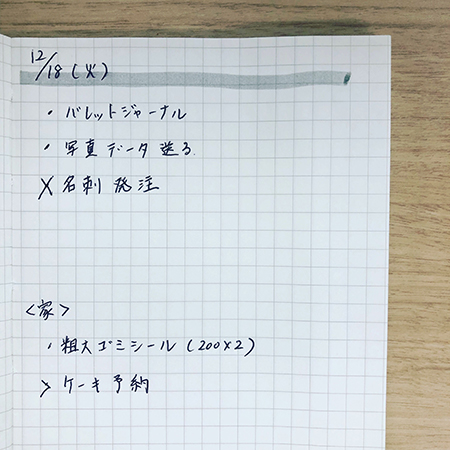 12/18(火)
・バレットジャーナル
・写真データ送る
X 名刺発注
<家>
・粗大ゴミシール(200×2)
> ケーキ予約